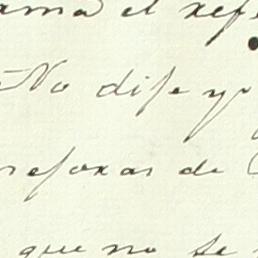 ama el refe
— No dije yo
señoras de
que no se